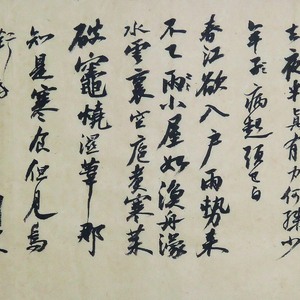 去夜半真有力何殊少
年子病起頭已白
春江欲入戶雨勢來
不已雨小屋如漁舟濛
水雲裏空庖煮寒菜
破竈燒濕葦那
知是寒食但見烏